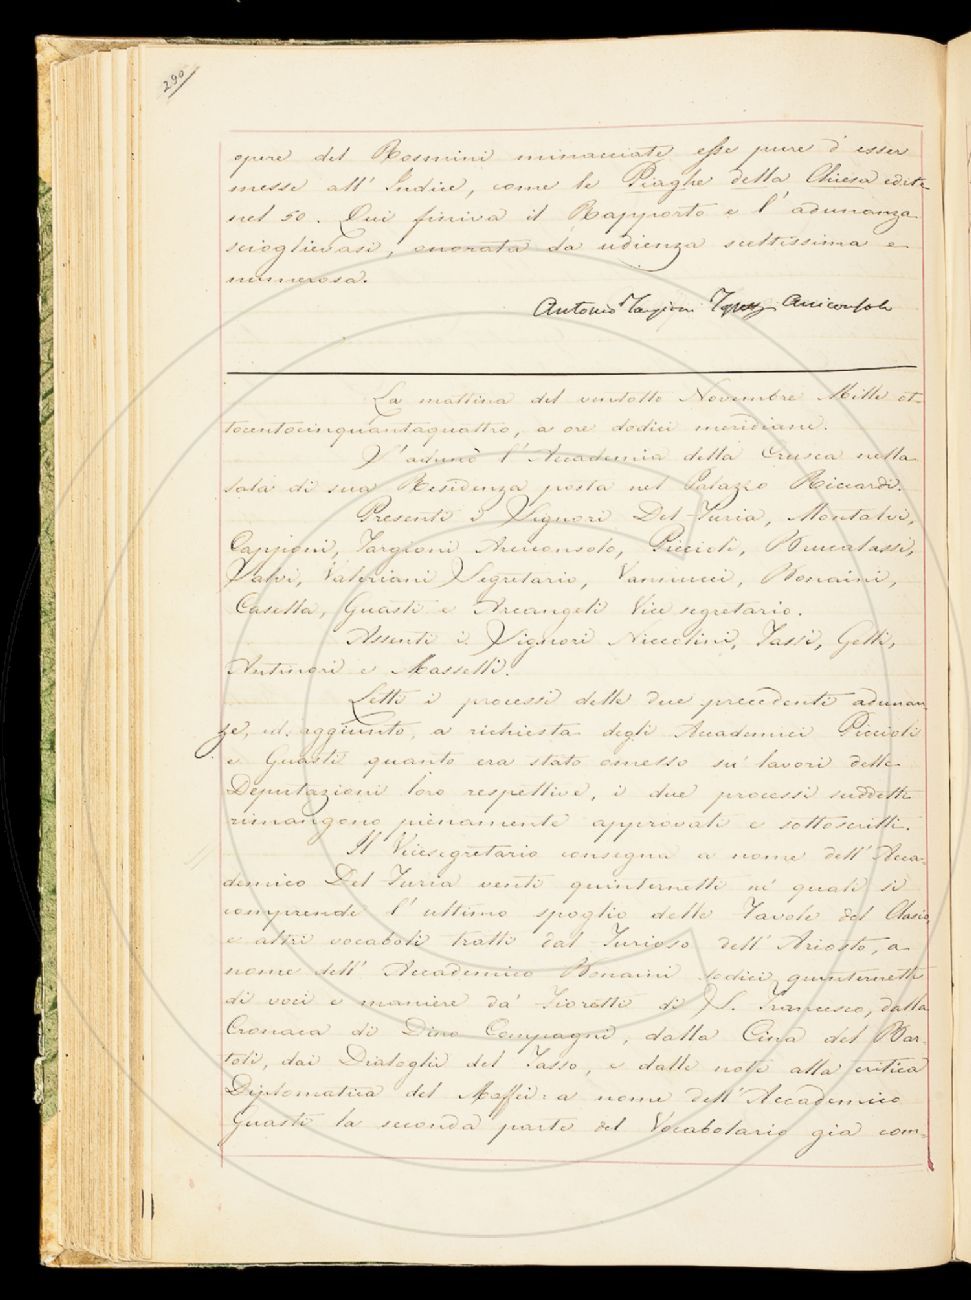 290
opere del Rosmini minacciate esse pure d'esser
messe all'Indice, come le Piaghe della Chiesa edite
nel 50. Qui finiva il Rapporto e l'adunanza
scioglievasi, onorata da udienza scettissima e
numerosa.
Antonio Targioni Tozzetti Arciconsolo
La mattina del ventotto Novembre Mille ot-
tocentocinquantaquattro, a ore dodici meridiane.
S'adunò l'Accademia della Crusca nella
sala di sua Residenza posta nel Palazzo Riccardi.
Presenti i Signori Del-Furia, Montalvi,
Capponi, Targioni Arciconsolo, Piccioli, Brucalassi,
Salvi, Valeriani Segretario, Vannucci, Bonaini,
Casella, Guasti e Arcangeli Vice segretario.
Assenti i Signori Niccolini, Tassi, Gelli,
Antinori e Masselli.
Letti i processi delle due precedenti adunan
ze, ed aggiunto, a richiesta degli Accademici Piccioli
e Guasti quanto era stato omesso su' lavori delle
Deputazioni loro respettive, i due processi suddetti
rimangono pienamente approvati e sottoscritti.
Il Vicesegretario consegna a nome dell'Acca-
demico Del Furia venti quinternetti ne' quali si
comprende l'ultimo spoglio delle Tavole del Clasio,
e altri vocaboli tratti dal Furioso dell'Ariosto, a
nome dell'Accademico Bonaini sedici quinternetti
di voci e maniere da' Fioretti di S. Francesco, dalla
Cronaca di Dino Compagni, dalla Cina del Bar-
toli, dai Dialoghi del Tasso, e dalle note alla critica
Diplomatica del Maffei: a nome dell'Accademico
Guasti la seconda parte del Vocabolario già com-